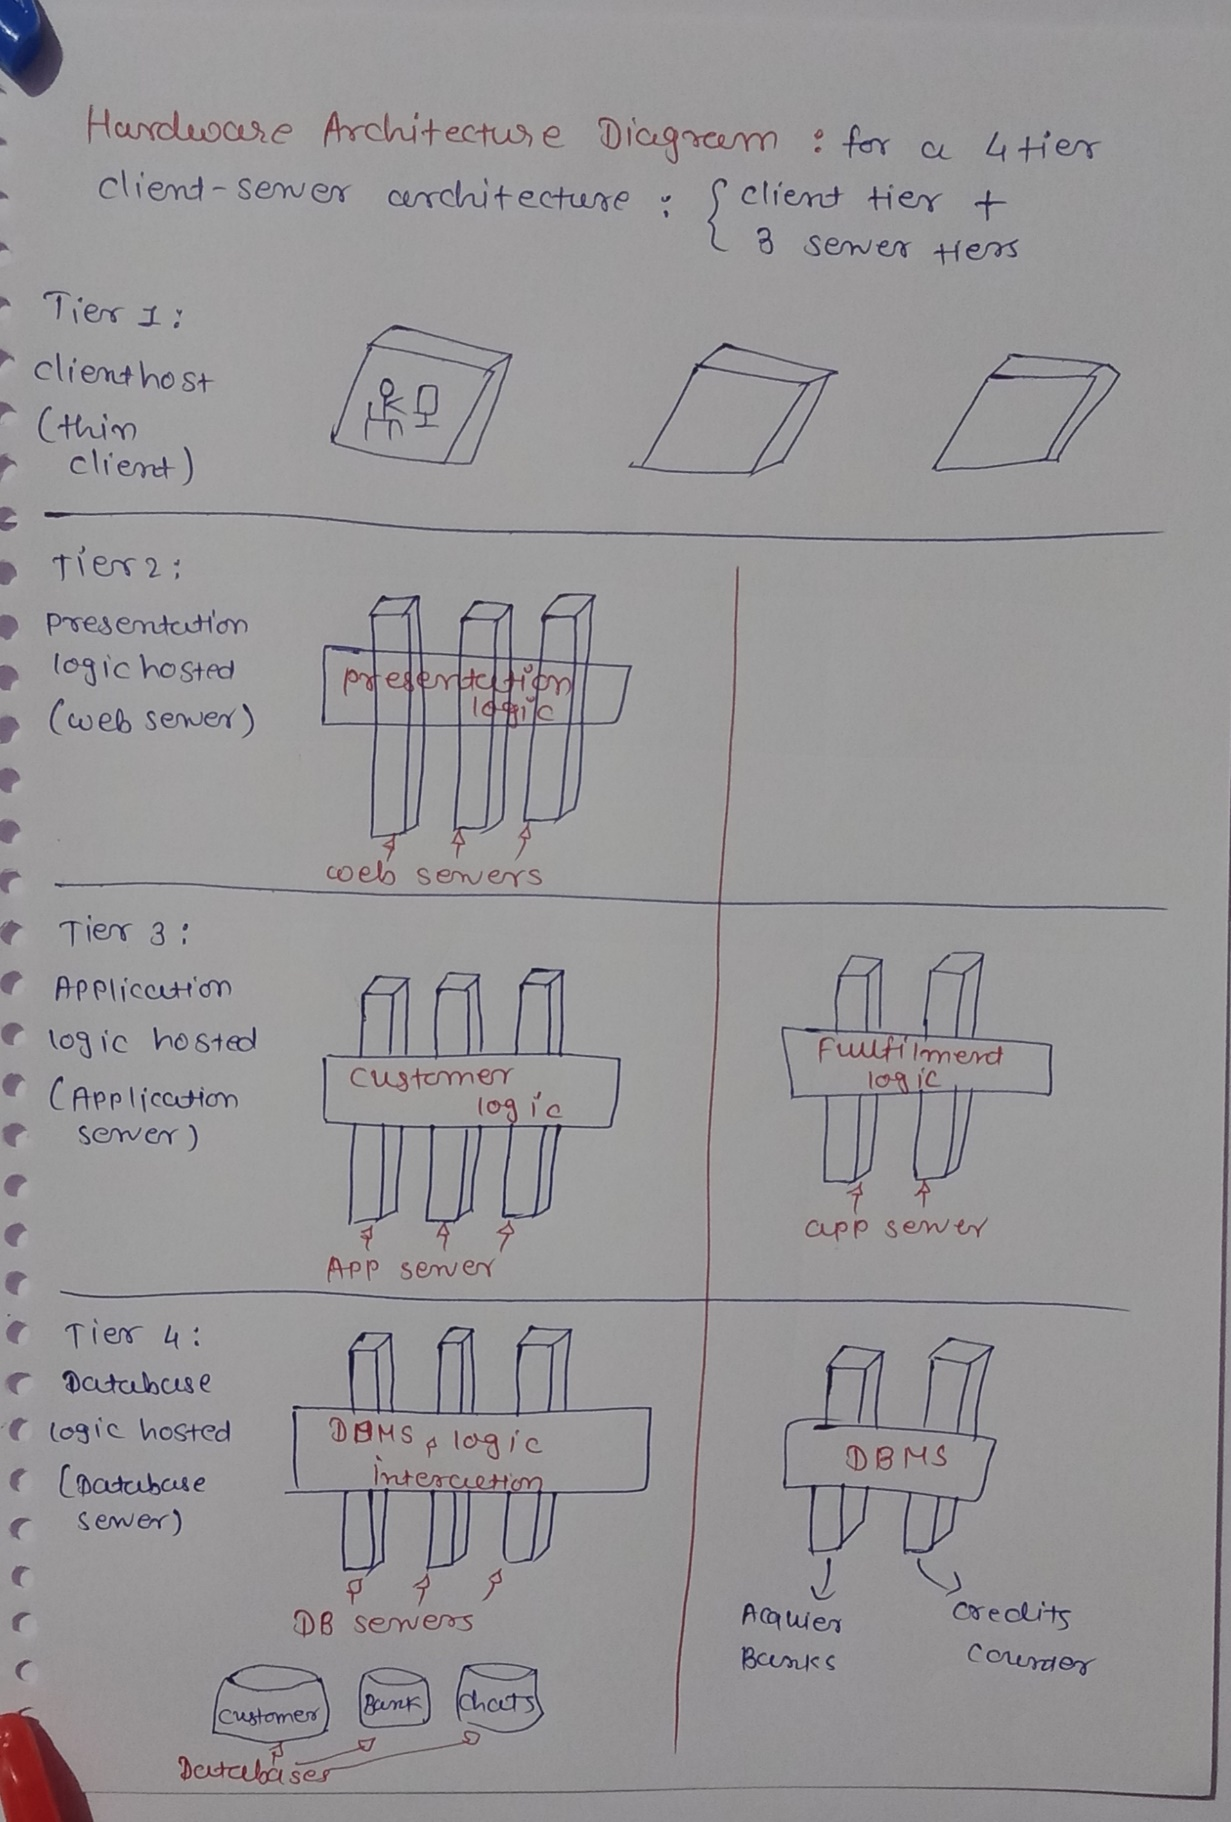 Hardware Architecture Diagram : for a 4 tier
client-server architecture : { client tier +
3 server tiers
Tier 1 :
client host
(thin
client)
Tier 2 :
presentation
logic hosted
(web server)
presentation
logic
web servers
Tier 3 :
Application
logic hosted
(Application
server)
customer
logic
App server
Fuulfilment
logic
app server
Tier 4 :
Database
logic hosted
(Database
server)
DBMS & logic
interaction
DB servers
DBMS
Acquier
Banks
credits
counder
customer
Bank
chats
Databases